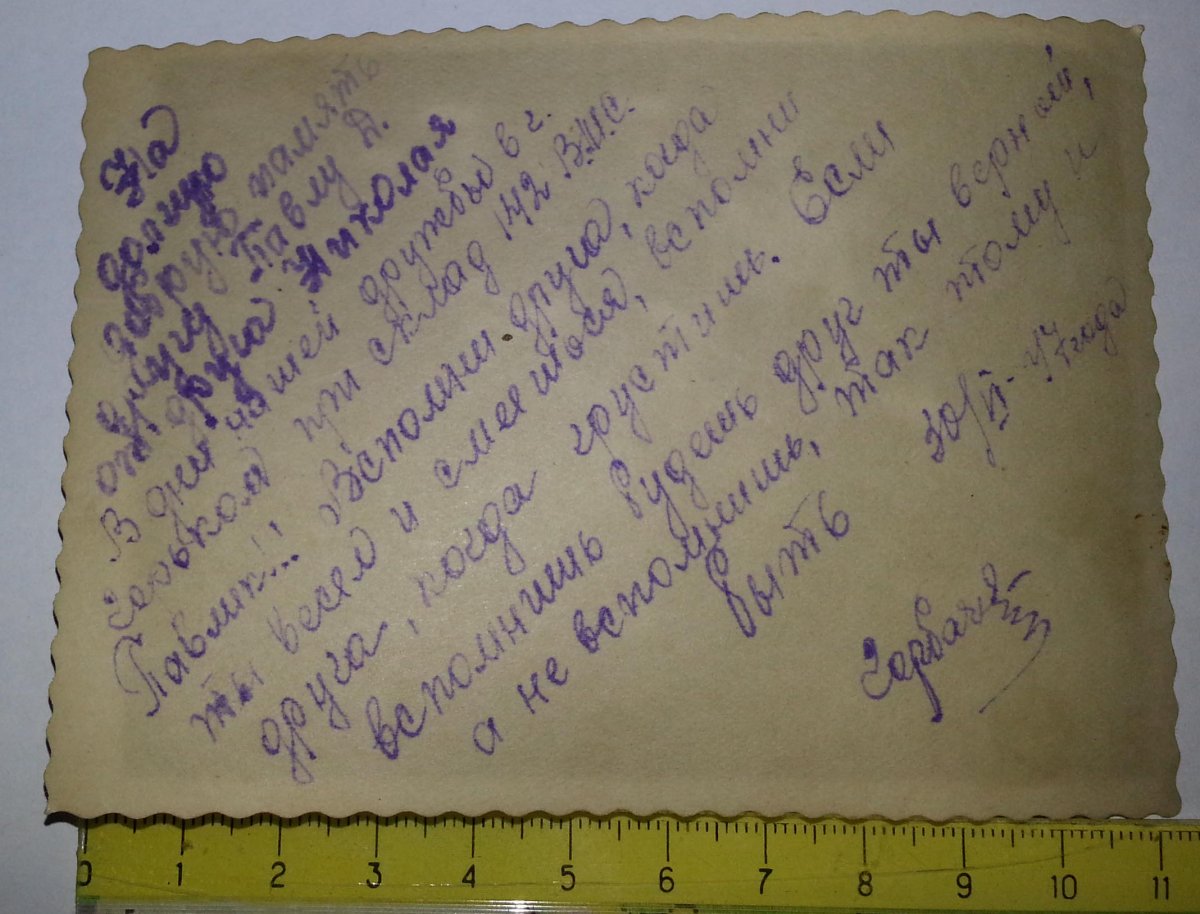 На
долгую
добрую память
другу Павлу Д.
от друга Николая
В дни нашей дружбы в г.
при склад 142 В.М.С.
Павлик!!! Вспомни друга, когда
ты весел и смеешься, вспомни
друга, когда грустишь. Если
вспомнишь будешь друг ты верный,
а не вспомнишь, так тому и
быть
30/VI-47 года
0 1 2 3 4 5 6 7 8 9 10 11